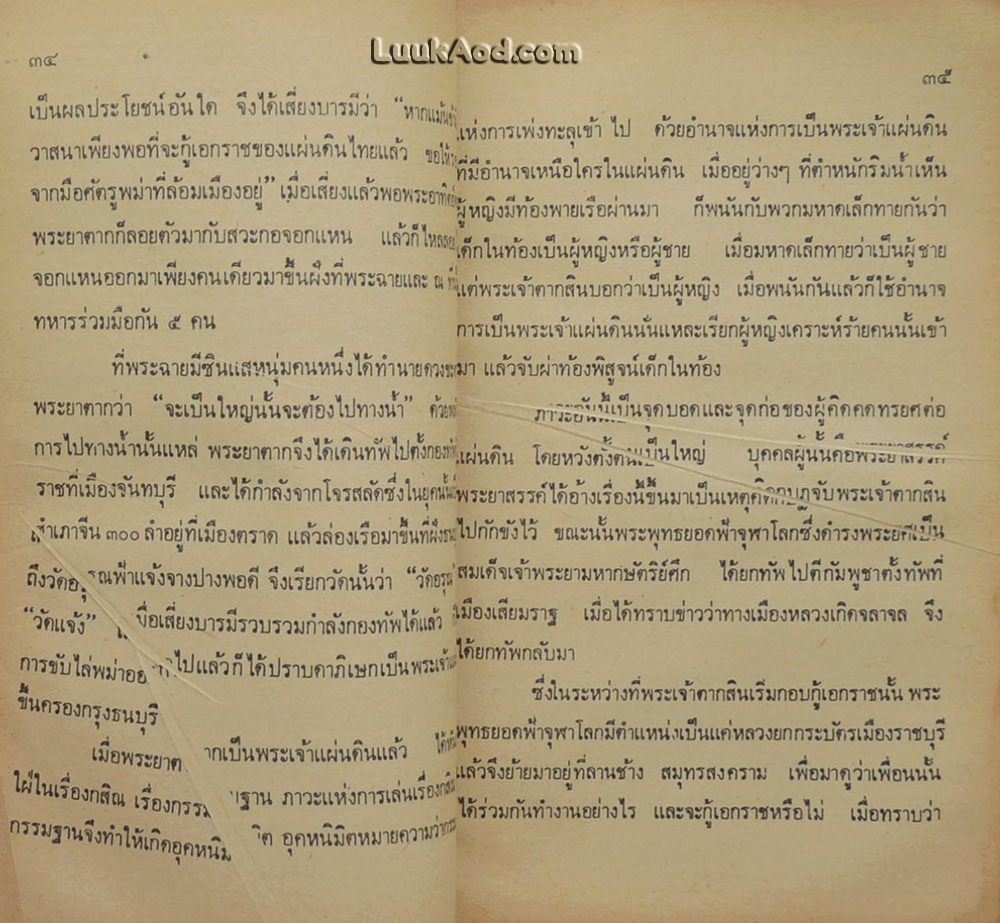 LuukAod.com
๓๔
เป็นผลประโยชน์อันใด จึงได้เสี่ยงบารมีว่า “หากแม้น
วาสนาเพียงพอที่จะกู้เอกราชของแผ่นดินไทยแล้ว ขอให้
จากมือศัตรูพม่าที่ล้อมเมืองอยู่” เมื่อเสี่ยงแล้วพอพระอาทิตย์
พระยาตากก็ลอยตัวมากับสวะกอจอกแหน แล้วก็ไหล
จอกแหนออกมาเพียงคนเดียวมาขึ้นฝั่งที่พระฉายและ ณ
ทหารร่วมมือกัน ๕ คน
ที่พระฉายมีซินแสหนุ่มคนหนึ่งได้ทำนายดวง
พระยาตากว่า “จะเป็นใหญ่นั้นจะต้องไปทางน้ำ” ด้วย
การไปทางน้ำนั้นแหล่ พระยาตากจึงได้เดินทัพไปตั้งกอง
ราชที่เมืองจันทบุรี และได้กำลังจากโจรสลัดซึ่งในยุคนั้น
สำเภาจีน ๓๐๐ ลำอยู่ที่เมืองตราด แล้วล่องเรือมาขึ้นที่ฝั่ง
ถึงวัดอรุณฟ้าแจ้งจางปางพอดี จึงเรียกวัดนั้นว่า “วัดอรุณ
“วัดแจ้ง” เมื่อเสี่ยงบารมีรวบรวมกำลังกองทัพได้แล้ว
การขับไล่พม่าออกไปแล้วก็ได้ปราบดาภิเษกเป็นพระเจ้า
ขึ้นครองกรุงธนบุรี
เมื่อพระยาตากเป็นพระเจ้าแผ่นดินแล้ว
ใฝ่ในเรื่องกสิณ เรื่องกรรมฐาน ภาวะแห่งการเล่นเรื่องกสิณ
กรรมฐานจึงทำให้เกิดอุคหนิมิต อุคหนิมิตหมายความว่า
๓๕
แห่งการเพ่งทะลุเข้า ไป ด้วยอำนาจแห่งการเป็นพระเจ้าแผ่นดิน
ที่มีอำนาจเหนือใครในแผ่นดิน เมื่ออยู่ว่างๆ ที่ตำหนักริมน้ำเห็น
ผู้หญิงมีท้องพายเรือผ่านมา ก็พนันกับพวกมหาดเล็กทายกันว่า
เด็กในท้องเป็นผู้หญิงหรือผู้ชาย เมื่อมหาดเล็กทายว่าเป็นผู้ชาย
แต่พระเจ้าตากสินบอกว่าเป็นผู้หญิง เมื่อพนันกันแล้วก็ใช้อำนาจ
การเป็นพระเจ้าแผ่นดินนั่นแหละเรียกผู้หญิงเคราะห์ร้ายคนนั้นเข้า
มา แล้วจับผ่าท้องพิสูจน์เด็กในท้อง
ภาวะอันนี้เป็นจุดบอดและจุดก่อของผู้คิดคดทรยศต่อ
แผ่นดิน โดยหวังตั้งตนเป็นใหญ่ บุคคลผู้นั้นคือพระยาสรรค์
พระยาสรรค์ได้อ้างเรื่องนี้ขึ้นมาเป็นเหตุคิดกบฏจับพระเจ้าตากสิน
ไปกักขังไว้ ขณะนั้นพระพุทธยอดฟ้าจุฬาโลกซึ่งดำรงพระยศเป็น
สมเด็จเจ้าพระยามหากษัตริย์ศึก ได้ยกทัพไปตีกัมพูชาตั้งทัพที่
เมืองเสียมราฐ เมื่อได้ทราบข่าวว่าทางเมืองหลวงเกิดจลาจล จึง
ได้ยกทัพกลับมา
ซึ่งในระหว่างที่พระเจ้าตากสินเริ่มกอบกู้เอกราชนั้น พระ
พุทธยอดฟ้าจุฬาโลกมีตำแหน่งเป็นแค่หลวงยกกระบัตรเมืองราชบุรี
แล้วจึงย้ายมาอยู่ที่ลานช้าง สมุทรสงคราม เพื่อมาดูว่าเพื่อนนั้น
ได้ร่วมกันทำงานอย่างไร และจะกู้เอกราชหรือไม่ เมื่อทราบว่า